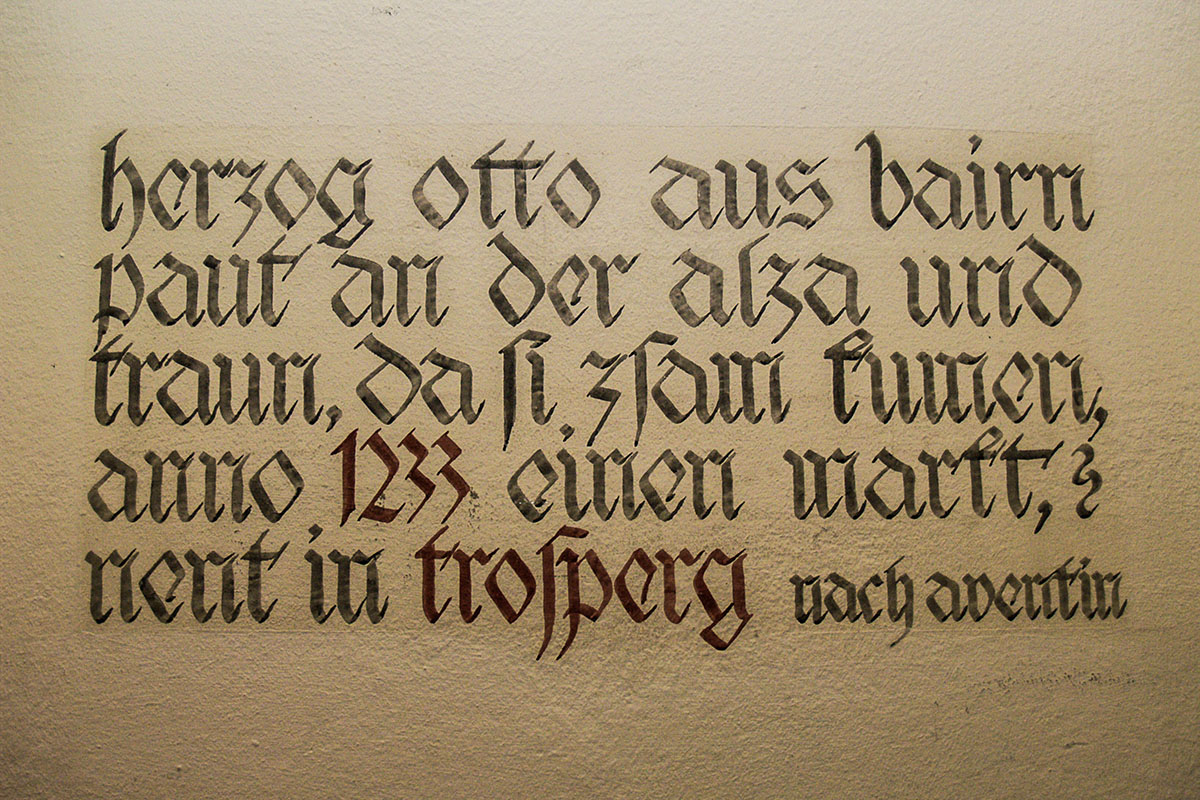 herzog otto aus bairn
paut an der alza und
traun, da ſi zſam kumen,
anno 1233 einen markt, &
nent in troſperg nach aventin